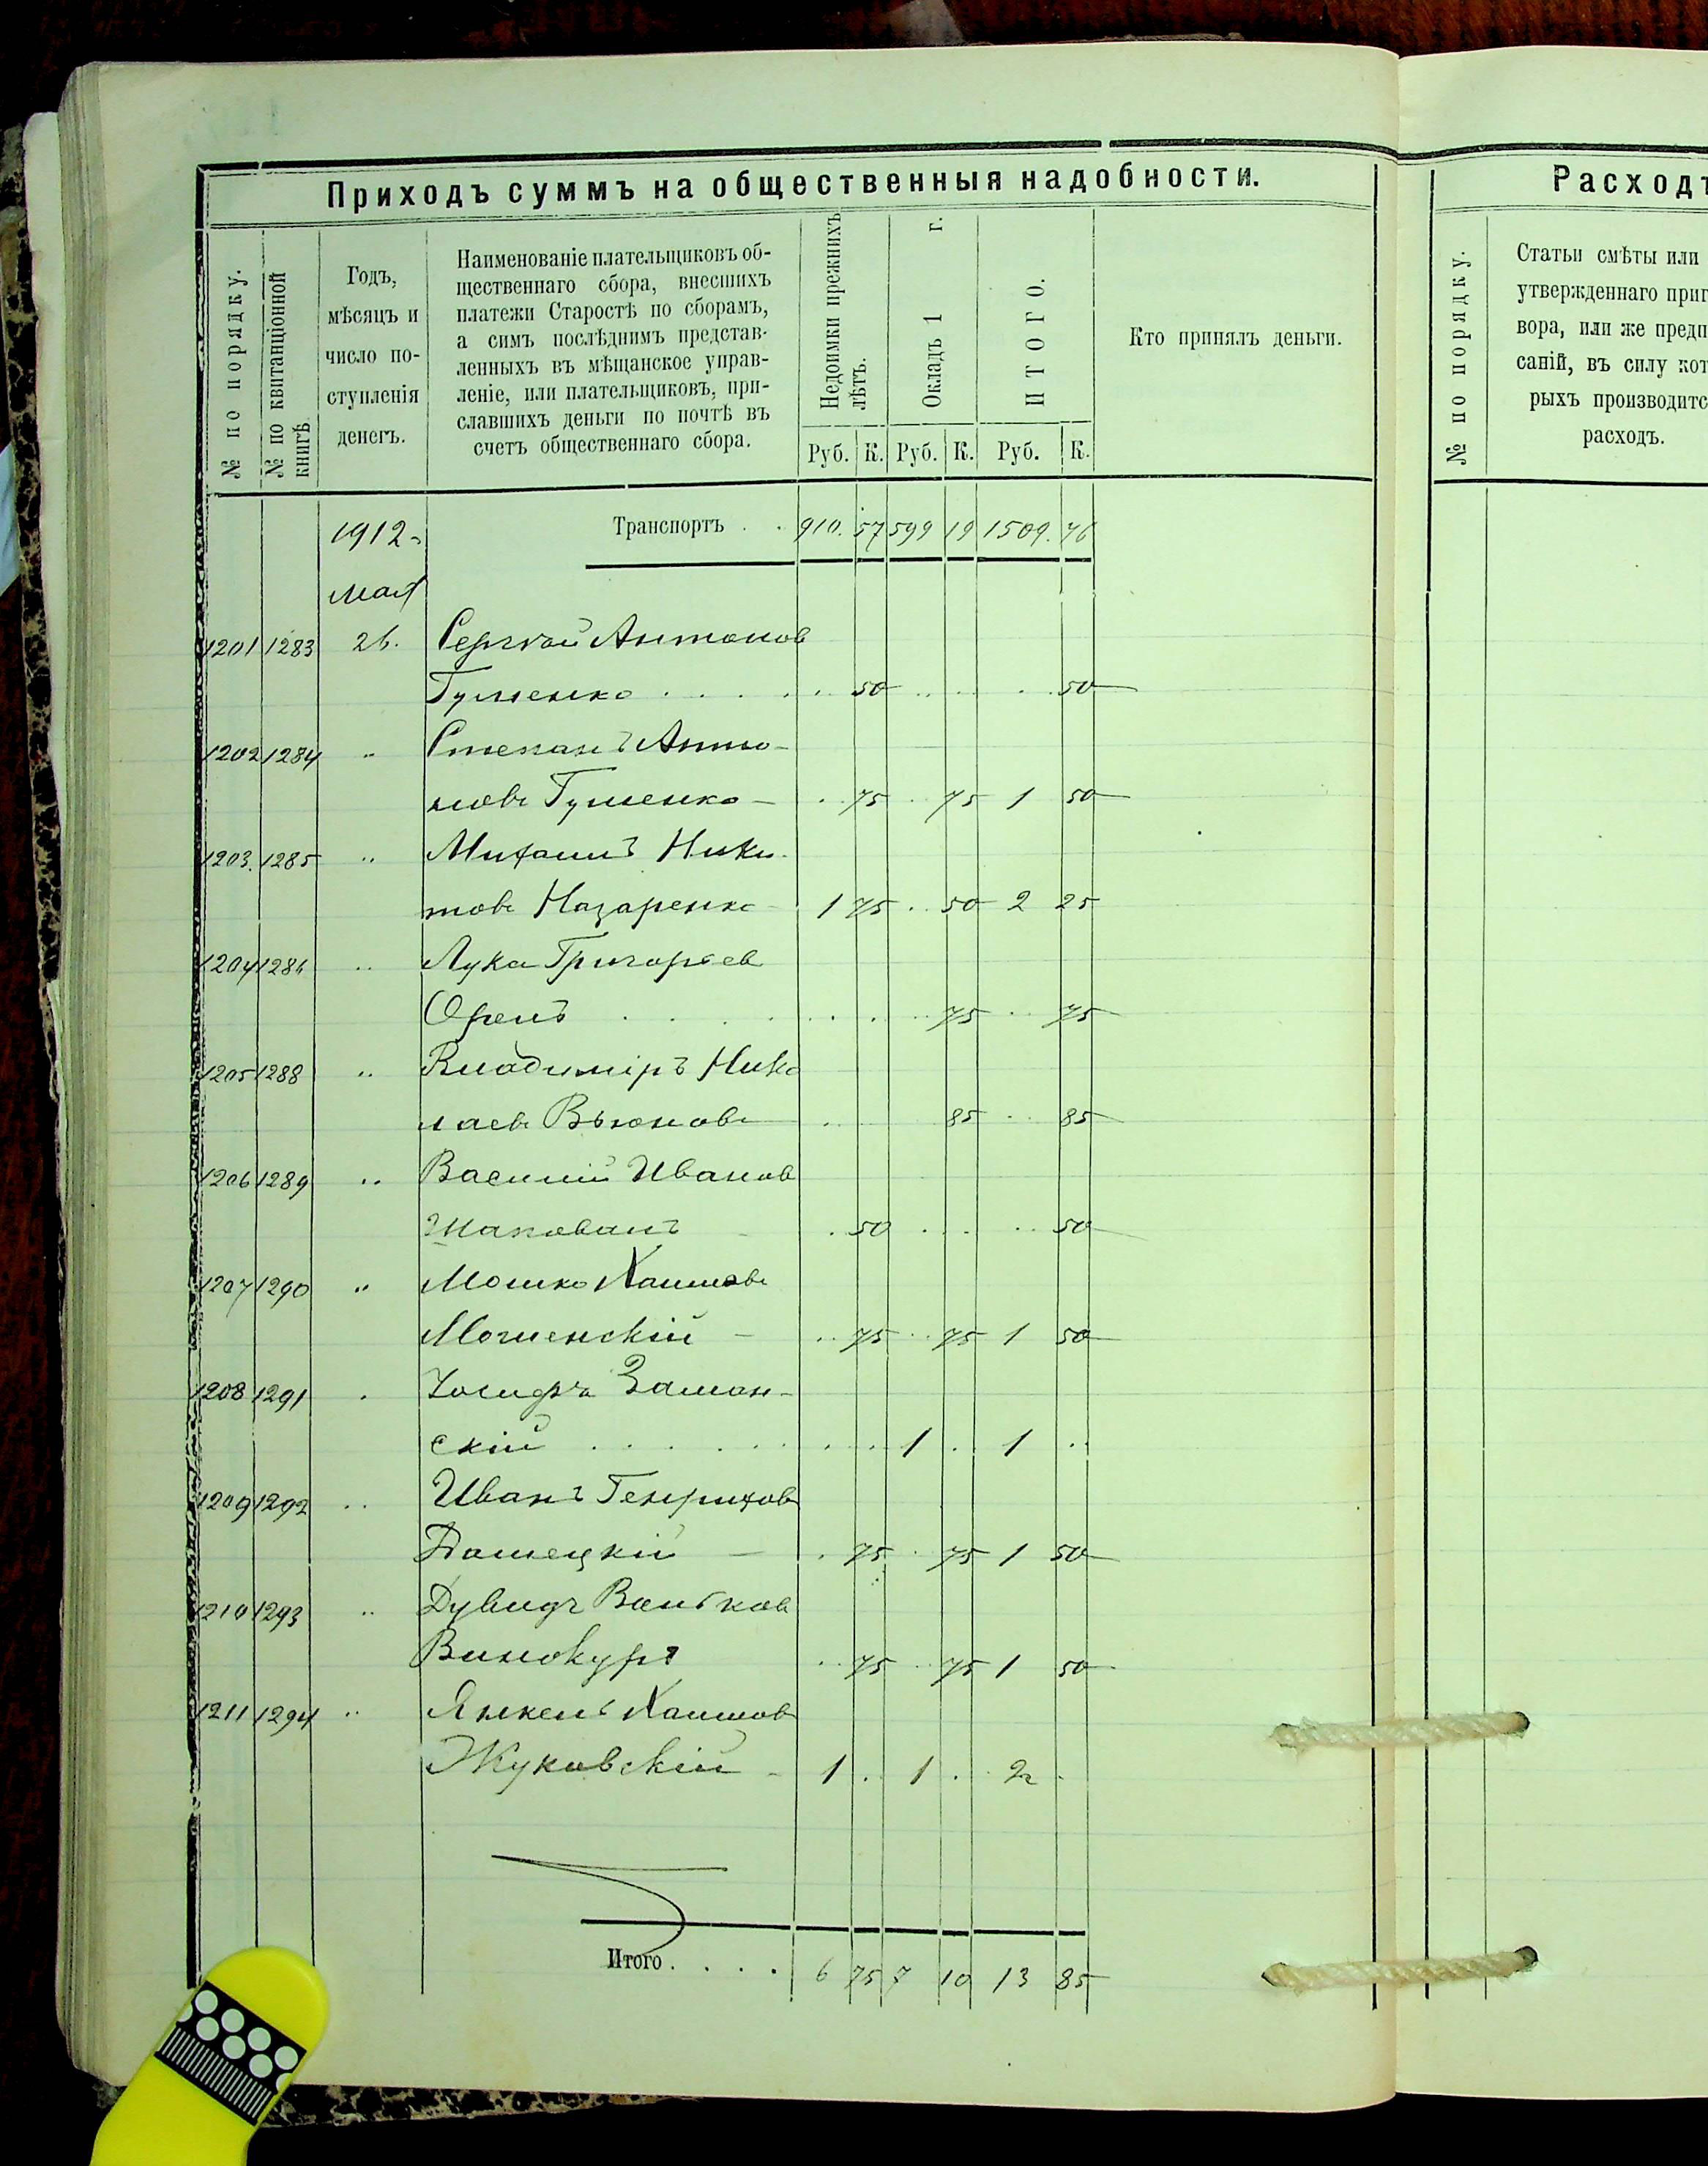 Приходъ суммъ на общественныя надобности.
№ по порядку.
№ по квитанціонной
книгѣ
Годъ,
мѣсяцъ и
число по-
ступленія
денегъ.
Наименованіе плательщиковъ об-
щественнаго сбора, внесшихъ
платежи Старостѣ по сборамъ,
а симъ послѣднимъ представ-
ленныхъ въ мѣщанское управ-
леніе, или плательщиковъ, при-
славшихъ деньги по почтѣ въ
счетъ общественнаго сбора.
Недоимки прежнихъ
лѣтъ.
Окладъ 1 г.
ИТОГО.
Кто принялъ деньги.
Руб. К. Руб. К. Руб. К.
1912 Транспортъ . . 910. 57 599 19 1509. 76
мая
1201 1283 26. Сергѣй Антонов
Гуменко . . . . . . 50 . . . . . 50
1202 1284 " Степанъ Анто-
новъ Гуменко - . . 75 . . 75 1 50
1203. 1285 " Михаилъ Ники-
товъ Назаренко 1 75 . . 50 2 25
1204 1286 " Лука Григорьев
. . . . . . . 75 . . 75
1205 1288 " Владиміръ Нико
лаевъ Вьюновъ . . . 85 . . 85
1206 1289 " Василій Иванов
Шаповалъ - . 50 . . . . . 50
1207 1290 " Мошко Хаимовъ
- . . 75 . . 75 1 50
1208 1291 .
скій . . . . . . . . . 1 . 1 . .
1209 1292 " Иванъ Генрихов
- . 75 . 75 1 50
1210 1293 " Дувидъ
Винокуръ . . 75 . . 75 1 50
1211 1294 " Янкель Хаимов
Жуковскій - 1 . 1 . 2 .
Итого . . . . 6 75 7 10 13 85
Расходъ
№ по порядку.
Статьи смѣты или
утвержденнаго приг
вора, или же предп
саній, въ силу кот
рыхъ производитс
расходъ.